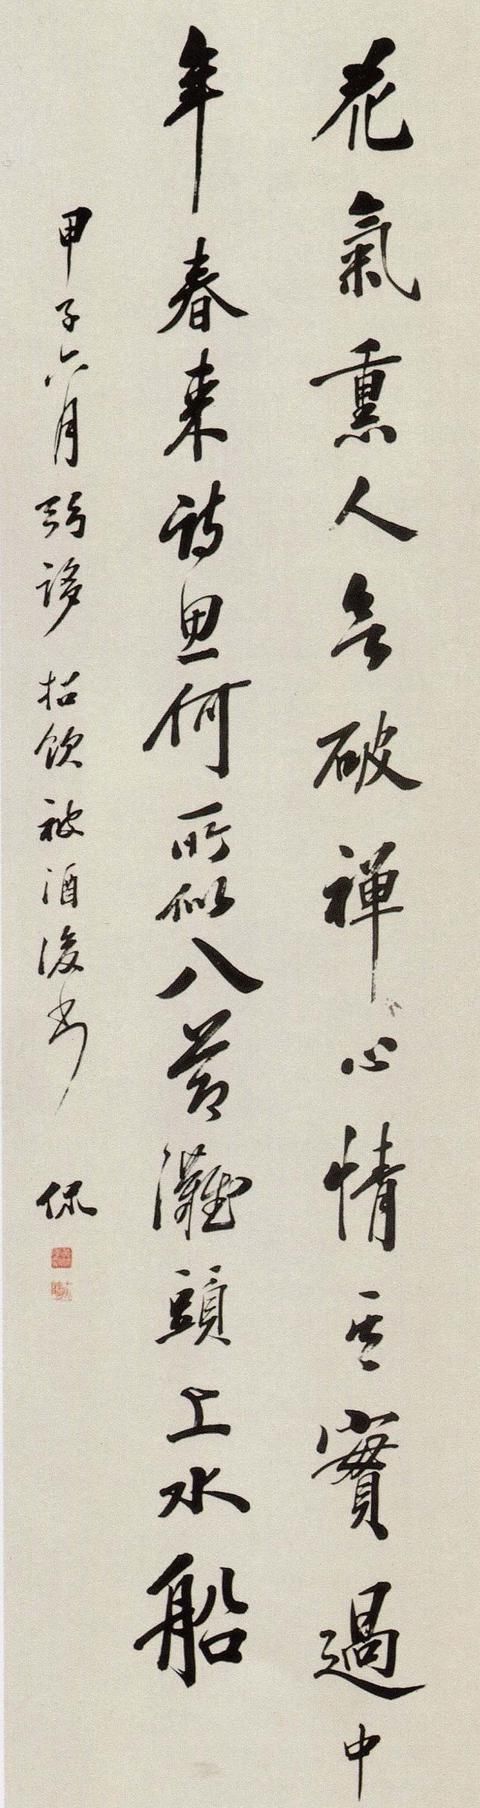 花氣熏人欲破禪心情其實過中
年春来詩思何所似八節灘頭上水船
甲子六月弱誃招飲被酒後書 侃